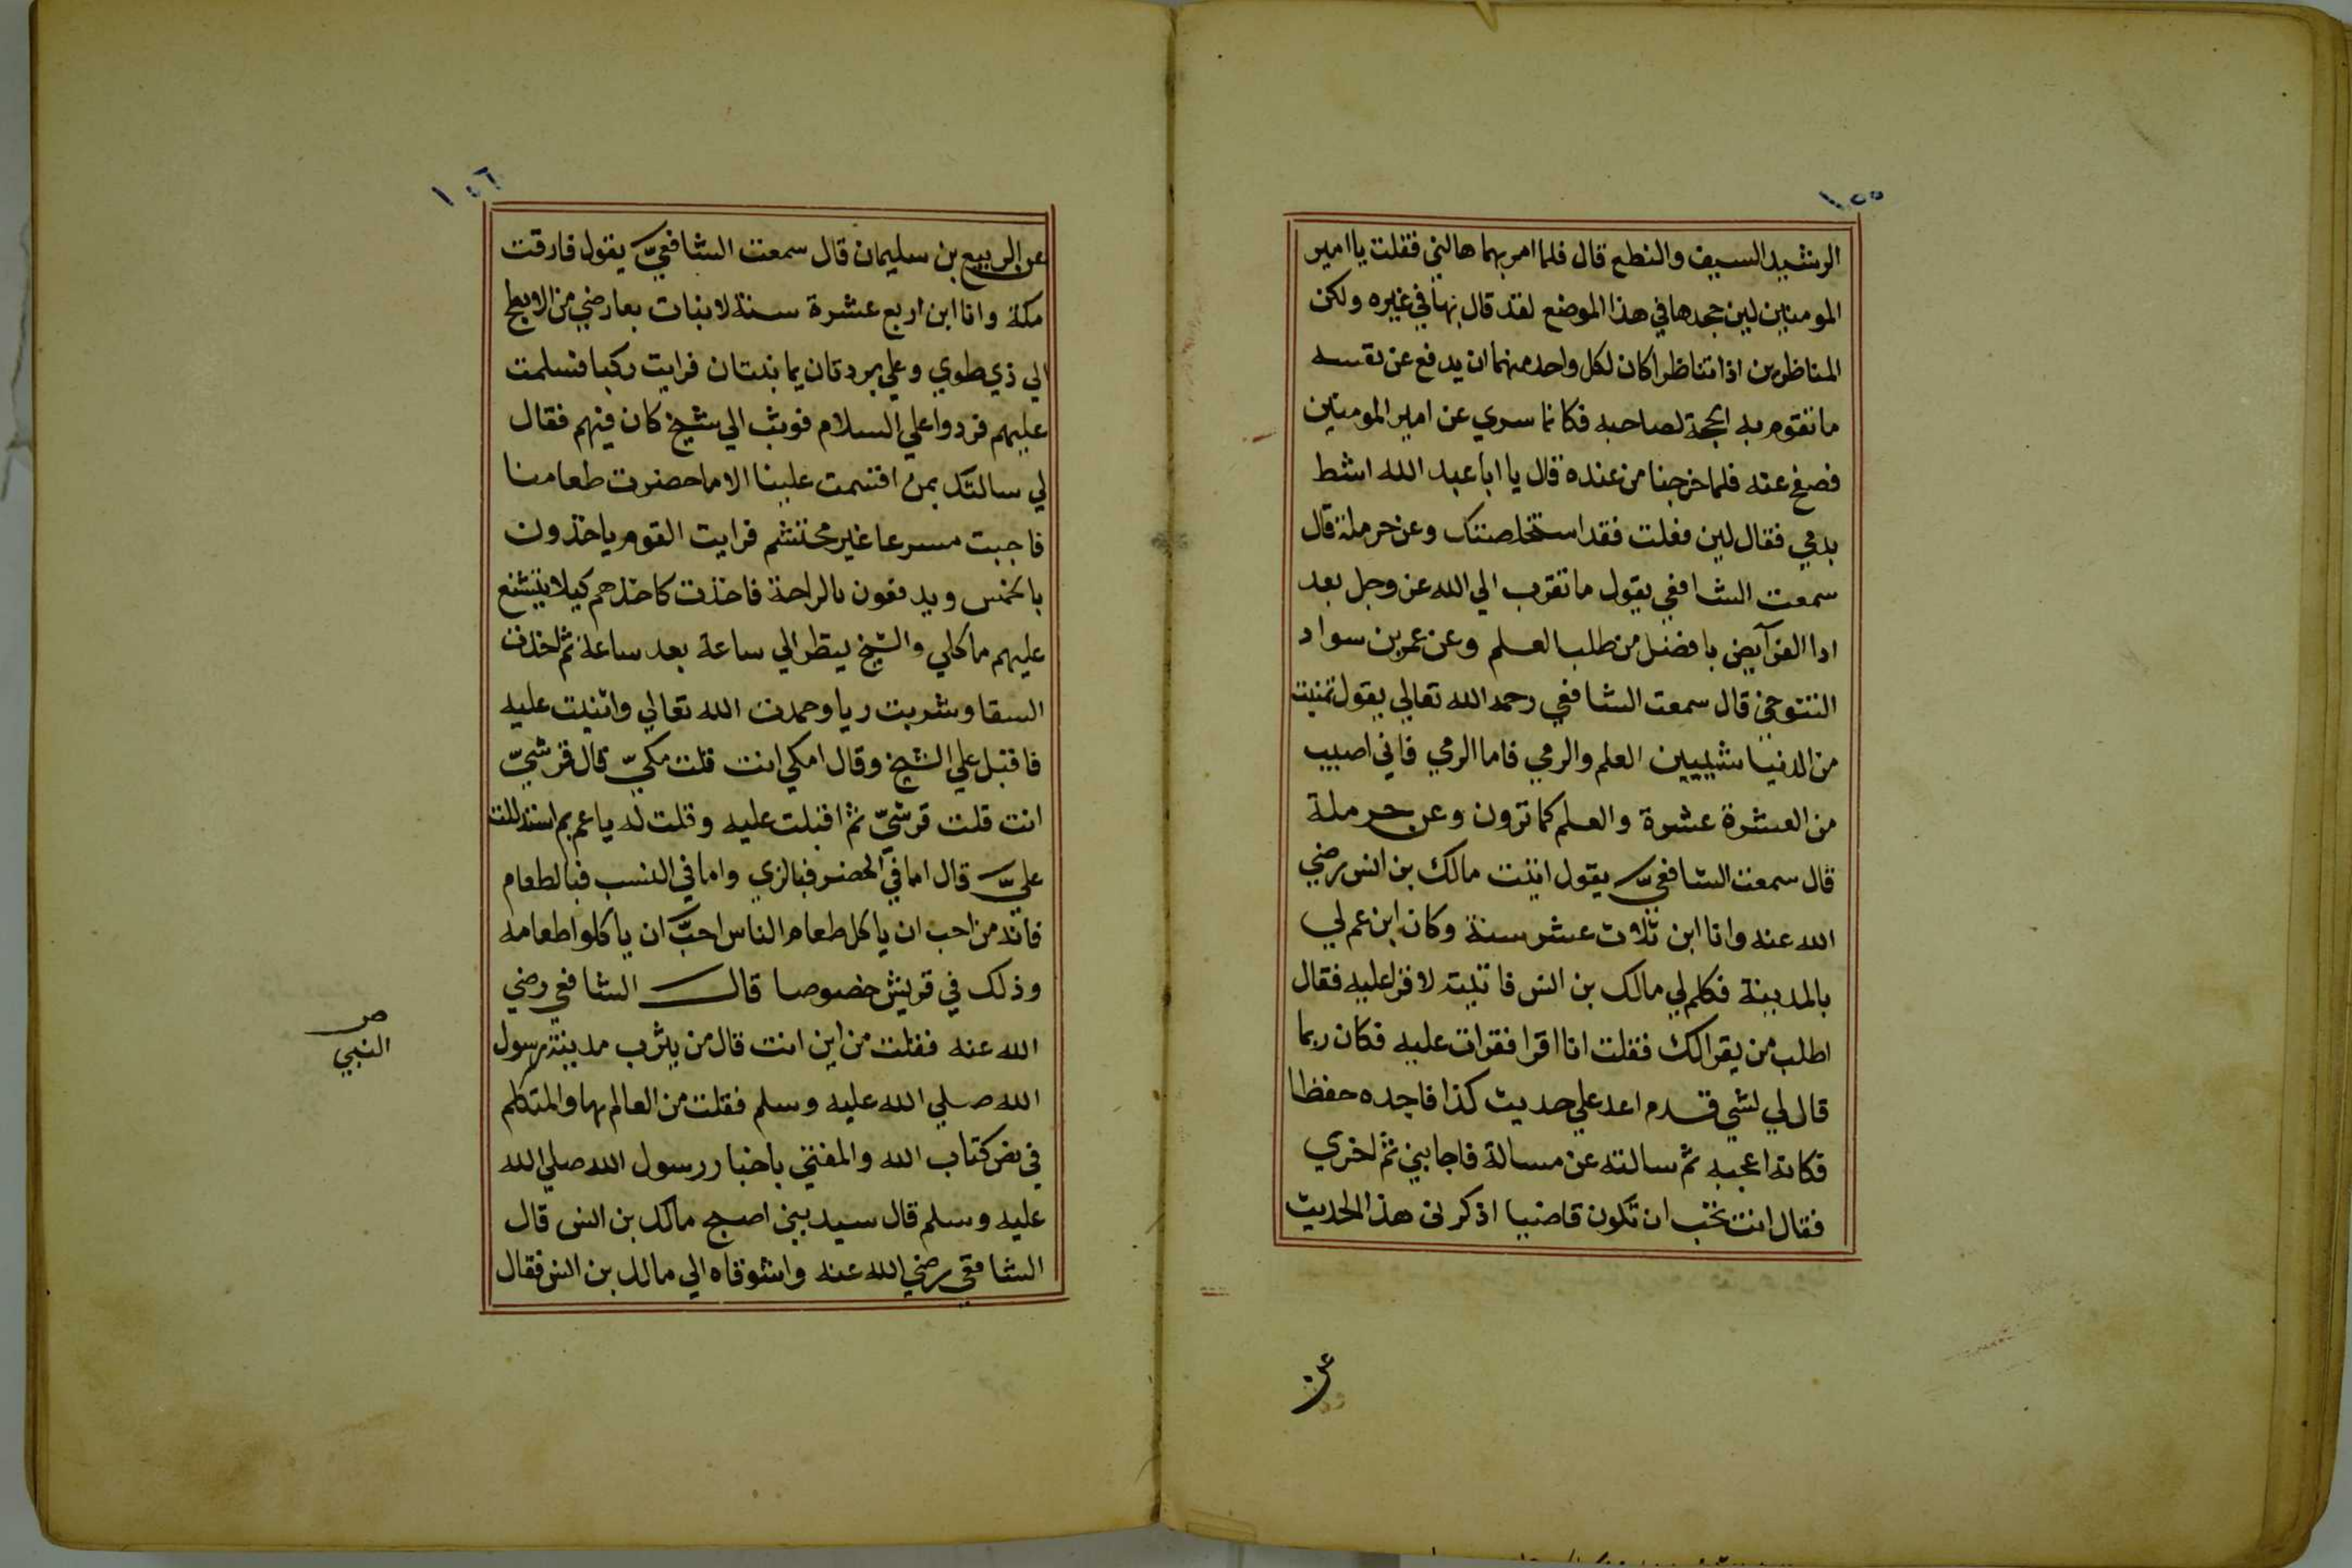 ١٥٥
الرشيد السيف والنطع قال فلما امر بهما هالني فقلت يا امير
المومنين لين جحدها في هذا الموضع لقد قال بها في غيره ولكن
المناظرين اذا تناظرا كان لكل واحد منهما ان يدفع عن نفسه
ما تقوم به الحجة لصاحبه فكانما سري عن امير المومنين
فصفح عنه فلما خرجنا من عنده قال يا ابا عبد الله اشط
بدمي فقال لين فعلت فقد استخلصتك وعن حرملة قال
سمعت الشافعي يقول ما تقرب الي الله عز وجل بعد
ادا الفرآيض بافضل من طلب العلم وعن عمر بن سواد
التنوخي قال سمعت الشافعي رحمه الله تعالي يقول تمنيت
من الدنيا شييين العلم والرمي فاما الرمي فاني اصيب
من العشرة عشرة والعلم كما ترون وعن حرملة
قال سمعت الشافعيّ يقول اتيت مالك بن انس رضي
الله عنه وانا ابن ثلاث عشر سنة وكان ابن عم لي
بالمدينة فكلم لي مالك بن انس فاتيته لاقرا عليه فقال
اطلب من يقرا لك فقلت انا اقرا فقرات عليه فكان ربما
قال لي لشي قدم اعد علي حديث كذا فاجده حفظا
فكانه اعجبه ثم سالته عن مسالة فاجابني ثم اخري
فقال انت تحب ان تكون قاضيا اذكرني هذا الحديث
عن
١٥٦
عن الربيع بن سليمان قال سمعت الشافعيّ يقول فارقت
مكة وانا ابن اربع عشرة سنة لا نبات بعارضي من الابطح
الي ذي طوي وعلي بردتان يمانيتان فرايت ركبا فسلمت
عليهم فردوا علي السلام فوثب الي شيخ كان فيهم فقال
لي سالتك بمن اقسمت علينا الا ما حضرت طعامنا
فاجبت مسرعا غير محتشم فرايت القوم ياخذون
بالخمس ويدفعون بالراحة فاخذت كاخذهم كيلا يتشنع
عليهم ماكلي والشيخ ينظر الي ساعة بعد ساعة ثم اخذت
السقا وشربت ريا وحمدت الله تعالي واثنيت عليه
فاقبل علي الشيخ وقال امكي انت قلت مكيّ قال قرشيّ
انت قلت قرشيّ ثم اقبلت عليه وقلت له يا عم بم استدللت
عليّ قال اما في الحضر فبالزي واما في النسب فبالطعام
فانه من احب ان ياكل طعام الناس احبّ ان ياكلوا طعامه
وذلك في قريش خصوصا قال الشافعي رضي
الله عنه فقلت من اين انت قال من يثرب مدينة رسول
الله صلي الله عليه وسلم فقلت من العالم بها والمتكلم
في نص كتاب الله والمفتي باخبار رسول الله صلي الله
عليه وسلم قال سيد بني اصبح مالك بن انس قال
الشافعي رضي الله عنه واشوقاه الي مالك بن انس فقال
النبي